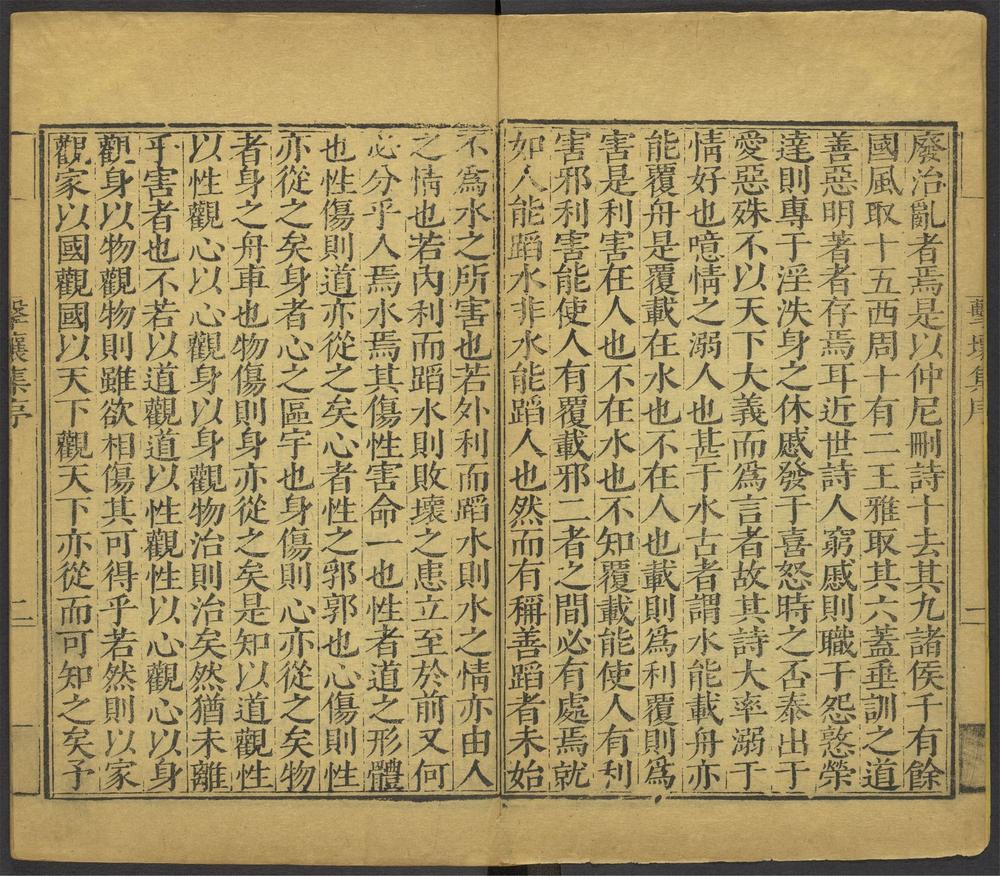 擊壤集序
二
廢治亂者焉是以仲尼刪詩十去其九諸侯千有餘
國風取十五西周十有二王雅取其六蓋垂訓之道
善惡明著者存焉耳近世詩人窮慼則職于怨憝榮
達則專于淫泆身之休慼發于喜怒時之否泰出于
愛惡殊不以天下大義而為言者故其詩大率溺于
情好也噫情之溺人也甚于水古者謂水能載舟亦
能覆舟是覆載在水也不在人也載則為利覆則為
害是利害在人也不在水也不知覆載能使人有利
害邪利害能使人有覆載邪二者之間必有處焉就
如人能蹈水非水能蹈人也然而有稱善蹈者未始
不為水之所害也若外利而蹈水則水之情亦由人
之情也若內利而蹈水則敗壞之患立至於前又何
必分乎人焉水焉其傷性害命一也性者道之形體
也性傷則道亦從之矣心者性之郛郭也心傷則性
亦從之矣身者心之區宇也身傷則心亦從之矣物
者身之舟車也物傷則身亦從之矣是知以道觀性
以性觀心以心觀身以身觀物治則治矣然猶未離
乎害者也不若以道觀道以性觀性以心觀心以身
觀身以物觀物則雖欲相傷其可得乎若然則以家
觀家以國觀國以天下觀天下亦從而可知之矣予
擊壤集序
二